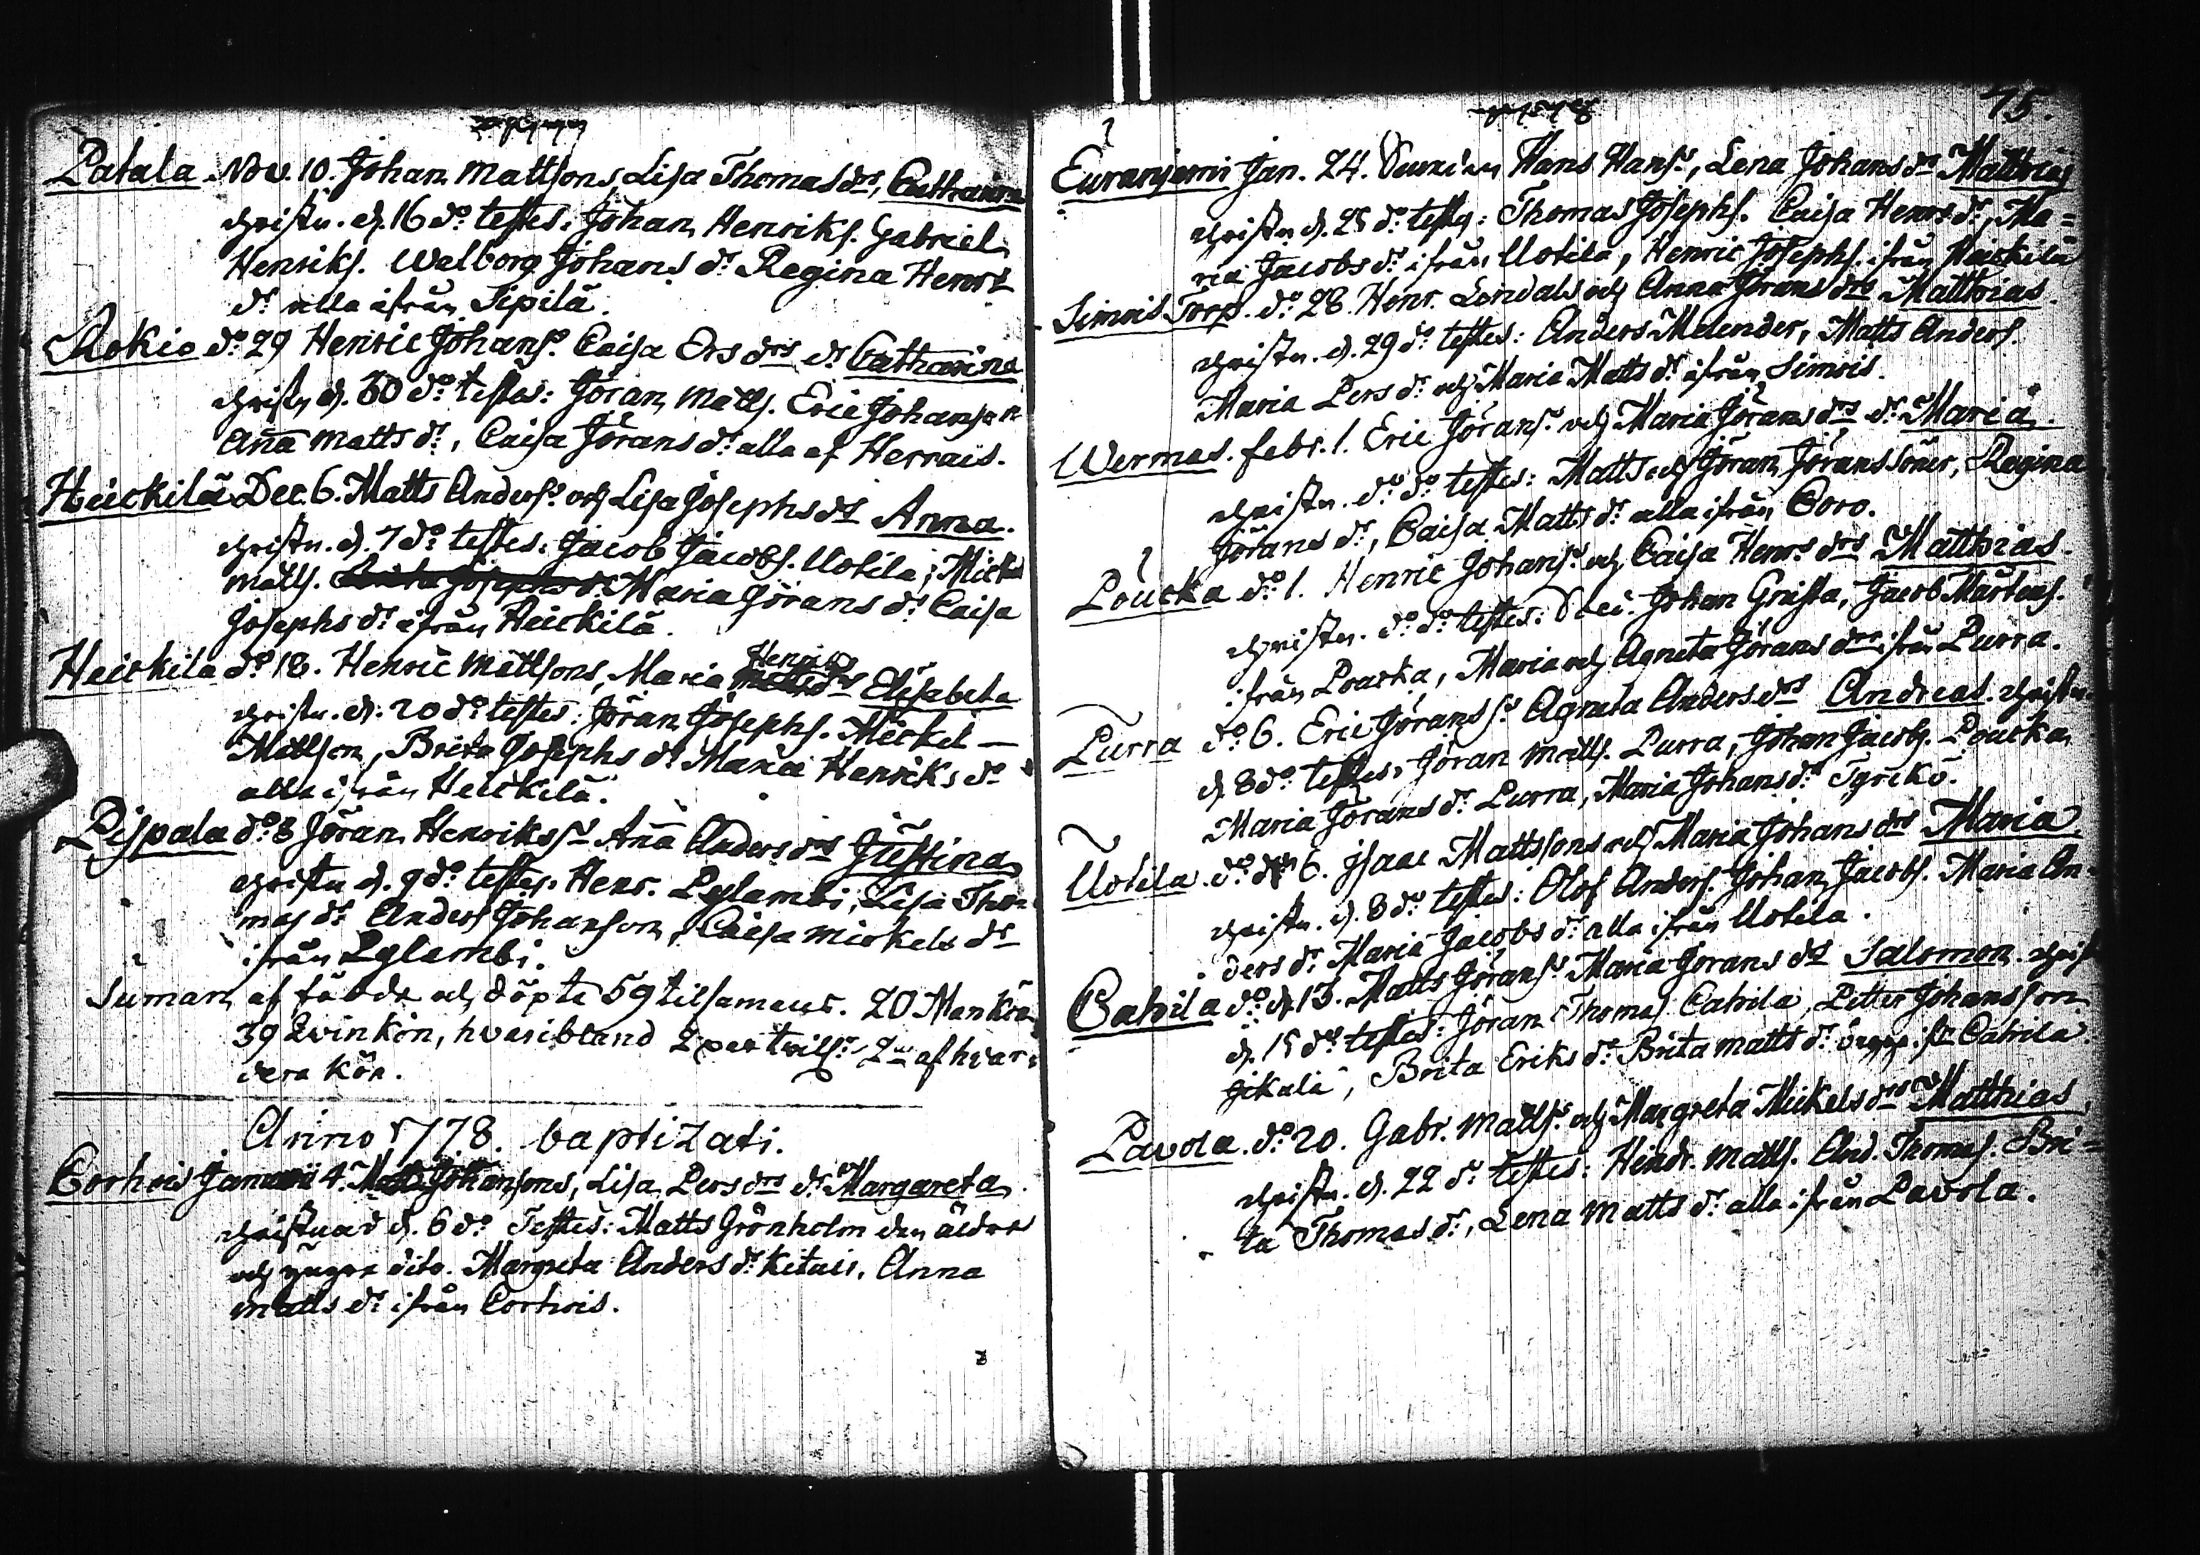 1777
Patala. Nov. 10. Johan Mattsons, Lisa Thomas drs, Catharina
christn. d. 16 do testes: Johan Henriks. Gabriel
Henriks. Walborg Johans dr Regina Henrs
dr alla ifrån Sipilä.
Rokio do 29 Henric Johans. Caisa Ers drs dr Catharina
christn d. 30 do testes: Jöran Matts. Eric Johanson
Anna Matts dr, Caisa Jörans dr alla af Herrais.
Heickilä Dec. 6. Matts Anders. och Lisa Josephs dr Anna.
christn. d. 7 do testes: Jacob Jacobs. Uotila; Mickel
Matts. Maria Jörans dr Caisa
Josephs dr ifrån Heickilä.
Heickila do 18. Henric Mattsons, Maria Henrics drs Elisabeta
christn. d. 20 do testes: Jöran Josephs. Mickel
Mattson, Brita Josephs dr Maria Henriks dr
alla ifrån Heickilä.
Pispala do 8 Jöran Henrikss Anna Anders drs Justina
christn d. 9 do testes. Henr. Pylambi, Lisa Tho-
mas dr Anders Johanson, Caisa Mickels dr
ifrån Pylambi.
Suman af födde och döpte 59 tilsamans. 20 Mankön
39 Qvinkön, hvaribland 2 par tvill. 2 af hvar-
dera kön.
Anno 1778. baptizati.
Corhois Januarii 4. Matts Johansons, Lisa Pers drs dr Margareta
christnad d. 6 do Testes: Matts Grönholm den äldre
och yngre dito. Margreta Anders dr Ketais. Anna
Matts dr ifrån Corhois.
1778 75.
Euranjemi Jan. 24. Hans Hans., Lena Johans dr Matthias
christn d. 25 do testes: Thomas Josephs. Caisa Henrs dr, Ma=
ria Jacobs dr ifrån Uotila, Henric Josephs. ifrån Heickilä
Simois Torp. do 28. Henr. och Anna Jörans drs Matthias.
christn. d. 29 do testes: Anders Melender, Matts Anders.
Maria Pers dr och Maria Matts dr ifrån Simois.
Wermas. Febr. 1. Eric Jörans. och Maria Jörans drs dr Maria.
christn. do do testes: Matts och Jöran Jöranssöner, Regina
Jörans dr, Caisa Matts dr alla ifrån Coro.
Poucka do 1. Henric Johans. och Caisa Henrs drs Matthias.
christn. do do testes: Johan Grästa, Jacob Mårtens.
ifrån Poucka, Maria och Agneta Jörans drar ifrån Purra.
Purra do 6. Eric Jöranss Agneta Anders drs Andreas. christn.
d. 8 do testes, Jöran Matts. Purra, Johan Jacobs. Poucka,
Maria Jörans dr Purra, Maria Johans dr Tyrikö.
Uotila. do 6. Isaac Mattssons och Maria Johans drs Maria.
christn. d. 8 do testes: Olof Anders. Johan Jacobs. Maria An-
ders dr Maria Jacobs dr alla ifrån Uotila.
Cahila do d. 13. Matts Jörans. Maria Jörans dr Salomon. christ
d. 15 do testes: Jöran Thomas. Cahila, Petter Johansson
Jikala, Brita Eriks dr Brita Matts dr ifr. Cahila.
Pavola. do 20. Gabr. Matts. och Margreta Mickels drs Matthias.
christn. d. 22 do testes: Hindr. Matts. And. Thomas. Bri=
ta Thomas dr, Lena Matts dr alla ifrån Pavola.